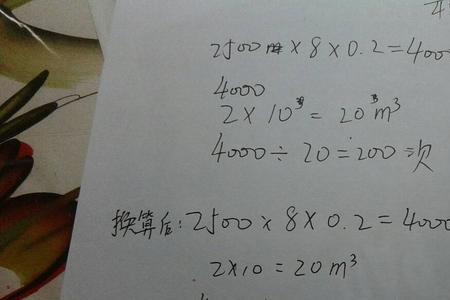 2500m×8×0.2=400
4000
2×10³=20³m³
4000÷20=200次
换算后:2500×8×0.2=4000
2×10=20m³